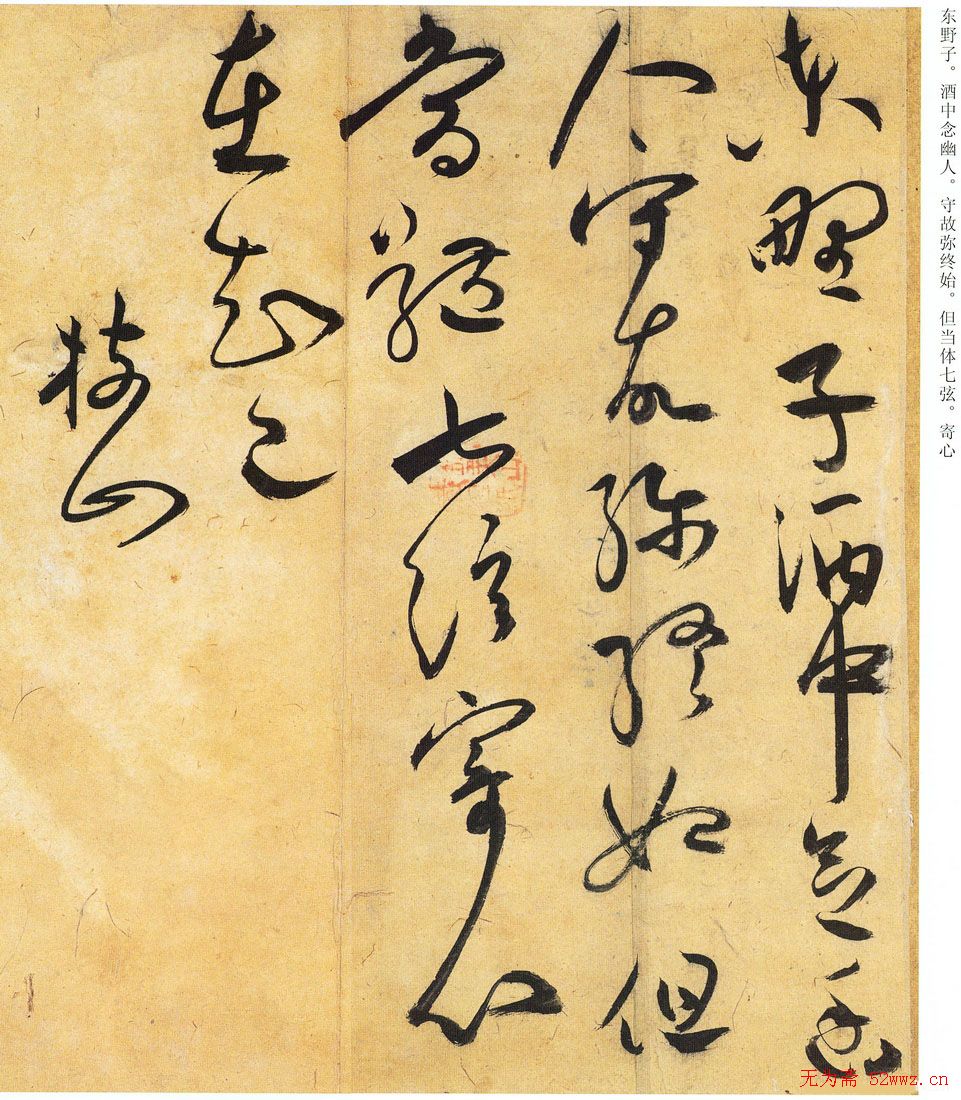 东野子。酒中念幽人。守故弥终始。但当体七弦。寄心
東野子酒中念幽
人守故彌終始但
當體七絃寄心
在知己
枝山
无为斋 52wwz.cn